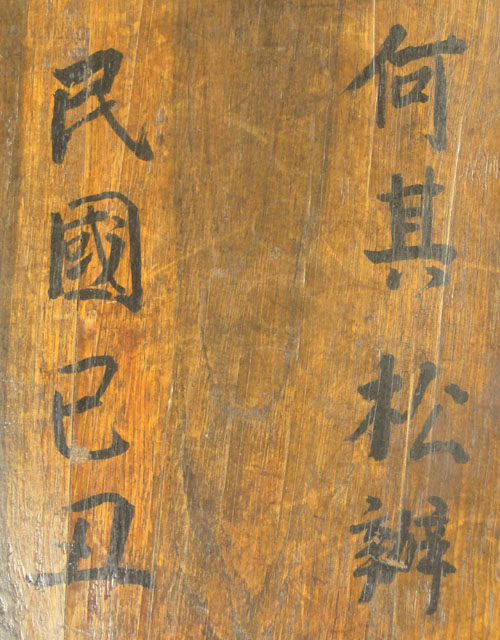 何其松辦
民國己丑